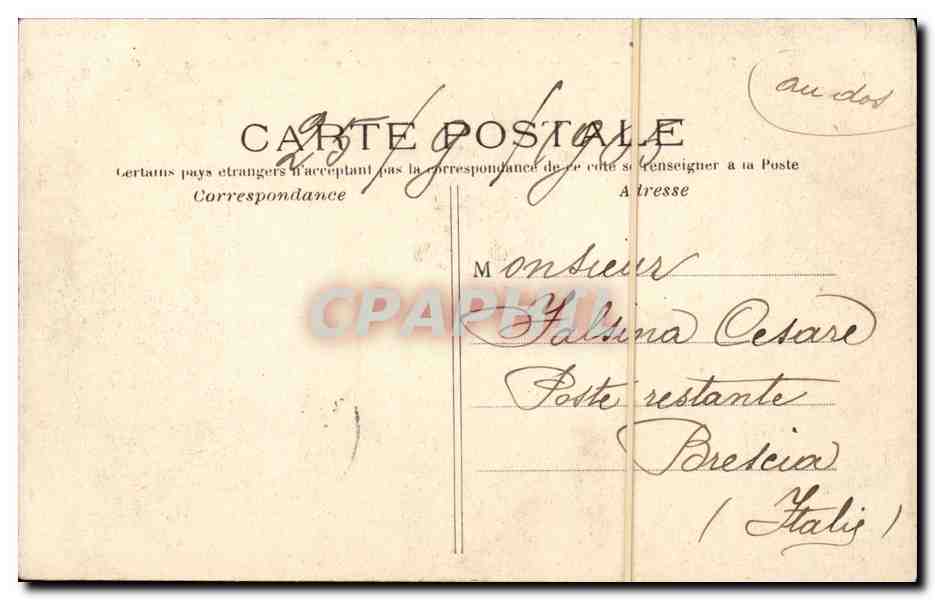 au dos
CARTE POSTALE
25/9/1905
Certains pays étrangers n'acceptant pas la correspondance de ce côté se renseigner à la Poste
Correspondance
Adresse
Monsieur
CPAPHIL
Falsina Cesare
Poste restante
Brescia
(Italie)